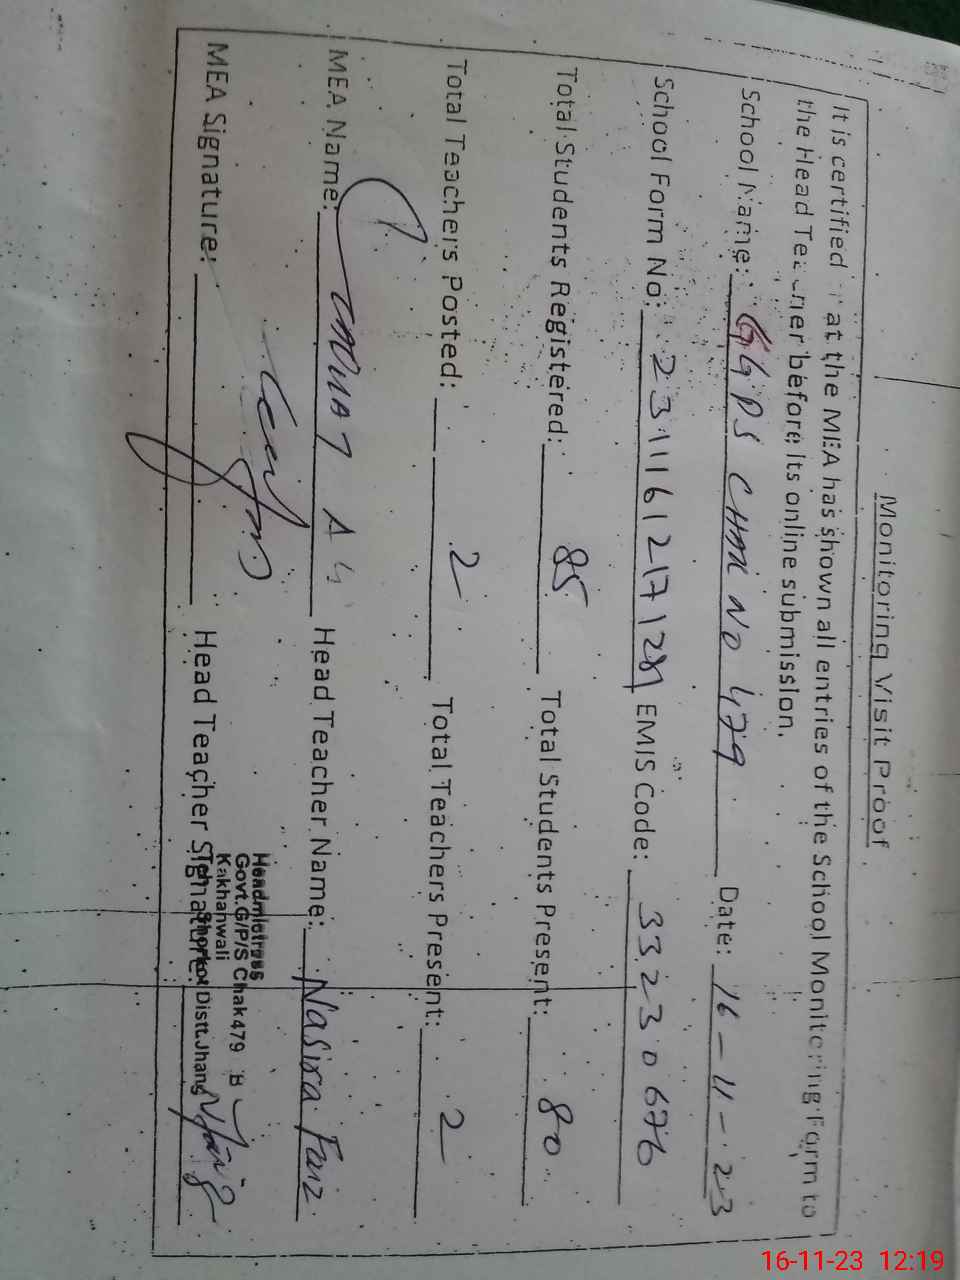 Monitoring Visit Proof
It is certified at the MEA has shown all entries of the School Monitoring Form to
the Head Teacher before its online submission.
School Name: GGPS CHAK NO 479 Date: 16-11-23
School Form No: EMIS Code: 33230676
Total Students Registered: 85 Total Students Present: 80
Total Teachers Posted: 2 Total Teachers Present: 2
MEA Name: Head Teacher Name: Nasira Faiz
MEA Signature: Head Teacher Signature:
Headmistress
Govt.G/P/S Chak 479 B
Kakhanwali
Teh Shorkot Distt.Jhang
16-11-23 12:19